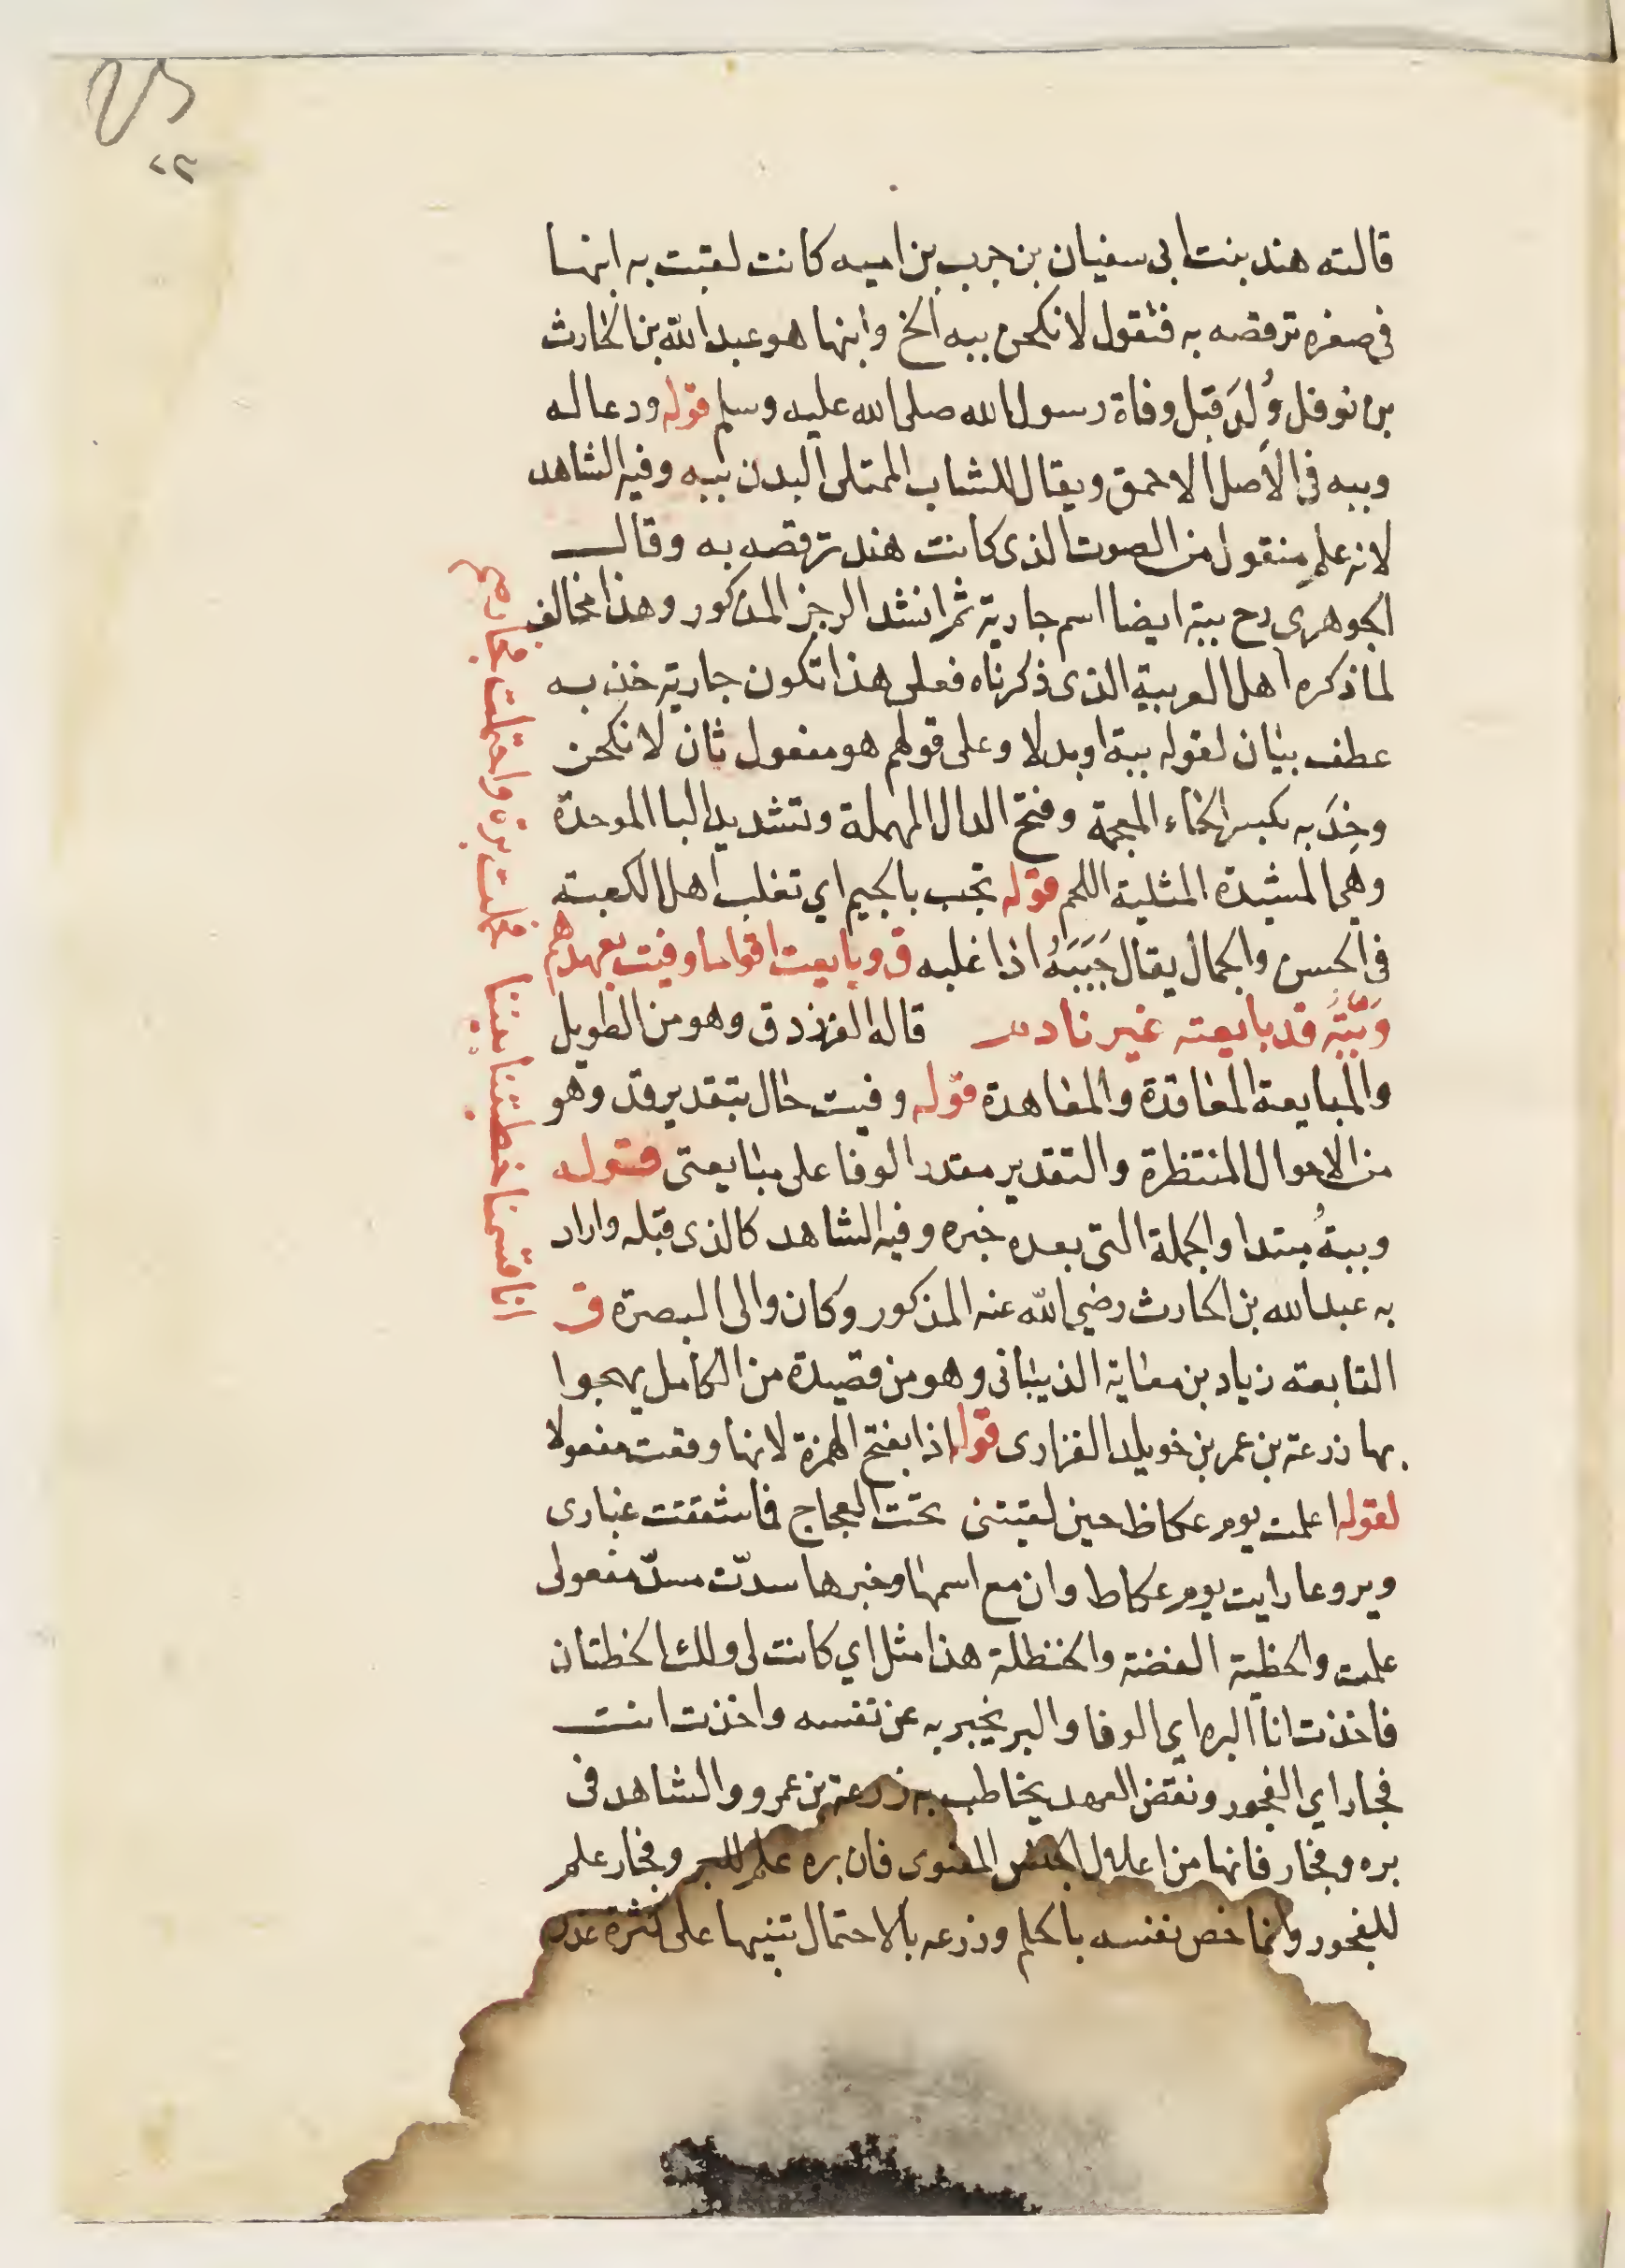 ٢٢
قالته هند بنت ابي سفيان بن حرب بن اميه كانت لقبت به ابنها
في صغره ترقصه به فتقول لانكحن ببه الخ وابنها هو عبد الله بن الحارث
بن نوفل وُلِدَ قبل وفاة رسول الله صلى الله عليه وسلم قوله ودعا له
وببه في الأصل الاحمق ويقال للشاب الممتلى البدن ببه وفيه الشاهد
لانه علم منقول من الصوت الذي كانت هند ترقصه به وقال
الجوهرى رح ببة ايضا اسم جارية ثم انشد الرجز المذكور وهذا مخالف
لما ذكره اهل العربية الذى ذكرناه فعلى هذا تكون جارية خذ به
عطف بيان لقوله ببة او بدلا وعلى قولهم هو مفعول ثان لانكحن
وخِدَبه بكسر الخاء المعجمة وفتح الدال المهملة وتشديد البا الموحدة
وهي المشدة المثلية اللحم قوله تجب بالجيم اي تغلب اهل الكعبة
في الحسن والجمال يقال جَبَبَهُ اذا غلبه ق وبايعت اقواما وفيت بعهدهم
وَبَّبَّةُ قد بايعته غير نادم قاله الفرزدق وهو من الطويل
والمبايعة المعاقدة والمعاهدة قوله وفيت حال بتقدير قد وهو
من الاحوال المنتظرة والتقدير مقدر الوفا على مبايعتى قوله
وببةُ مبتدا والجملة التي بعده خبره وفيه الشاهد كالذى قبله واراد
به عبد الله بن الحارث رضي الله عنه المذكور وكان والى البصرة ق
انا اقتسمنا خطتينا بيننا فحملت بره واحتملت فجار صح
النابعة زياد بن معاية الذيبانى وهو من قصيدة من الكامل يهجوا
بها زرعة بن عمر بن خويلد الفزارى قوله اذا بفتح الهمزة لانها وقعت مفعولا
لقوله اعلمت يوم عكاظ حين لقيتنى تحت العجاج فما شققت غبارى
ويروعا رايت يوم عكاط وان مع اسمها وخبرها سدّت مسدّ مفعولى
علمت والحظية الفضة والخنظلة هذا مثل اي كانت لى ولك الخطتان
فاخذت انا البره اي الوفا والبر يخبر به عن نفسه واخذت انت
فجار اي الفجور ونقض العهد يخاطب به زرعة بن عمرو والشاهد فى
بره وفجار فانها من اعلال الجنس المعنوى فان بره علم للبر وفجار علم
للفجور وانما خص نفسه بالحلم وزرعه بالاحتمال تنيها على كثرة غدر